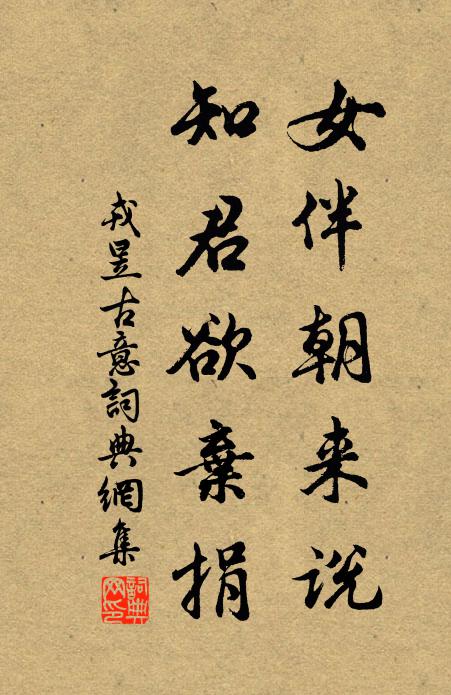 女伴朝来説
知君欲棄捐
戎昱古意詞典網集
詞典网印